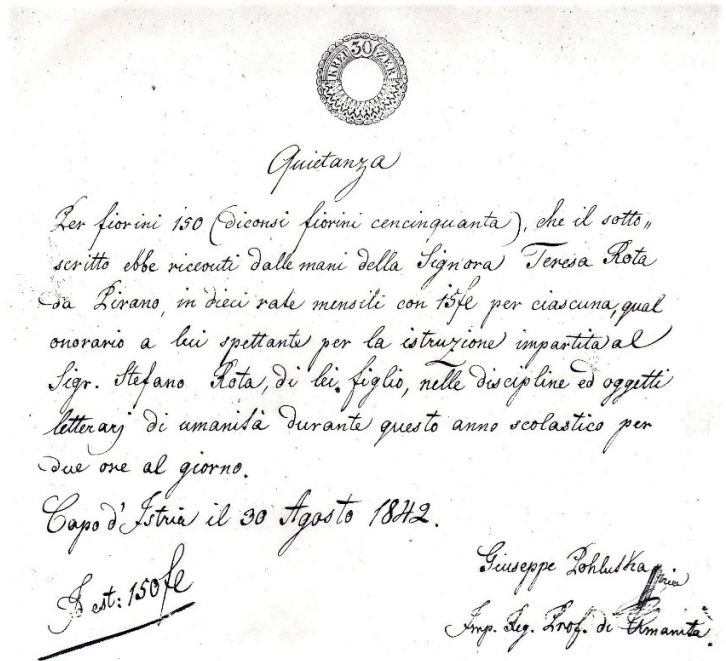 30 KREUZER
Quietanza
Per fiorini 150 (diconsi fiorini cencinquanta), che il sotto„
scritto ebbe ricevuti dalle mani della Signora Teresa Rota
da Pirano, in dieci rate mensili con 15 f per ciascuna, qual
onorario a lui spettante per la istruzione impartita al
Sigr. Stefano Rota, di lei figlio, nelle discipline ed oggetti
letterarj di umanità durante questo anno scolastico per
due ore al giorno.
Capo d'Istria il 30 Agosto 1842.
est: 150
Giuseppe Pohluska
Imp. Reg. Prof. di Umanità.